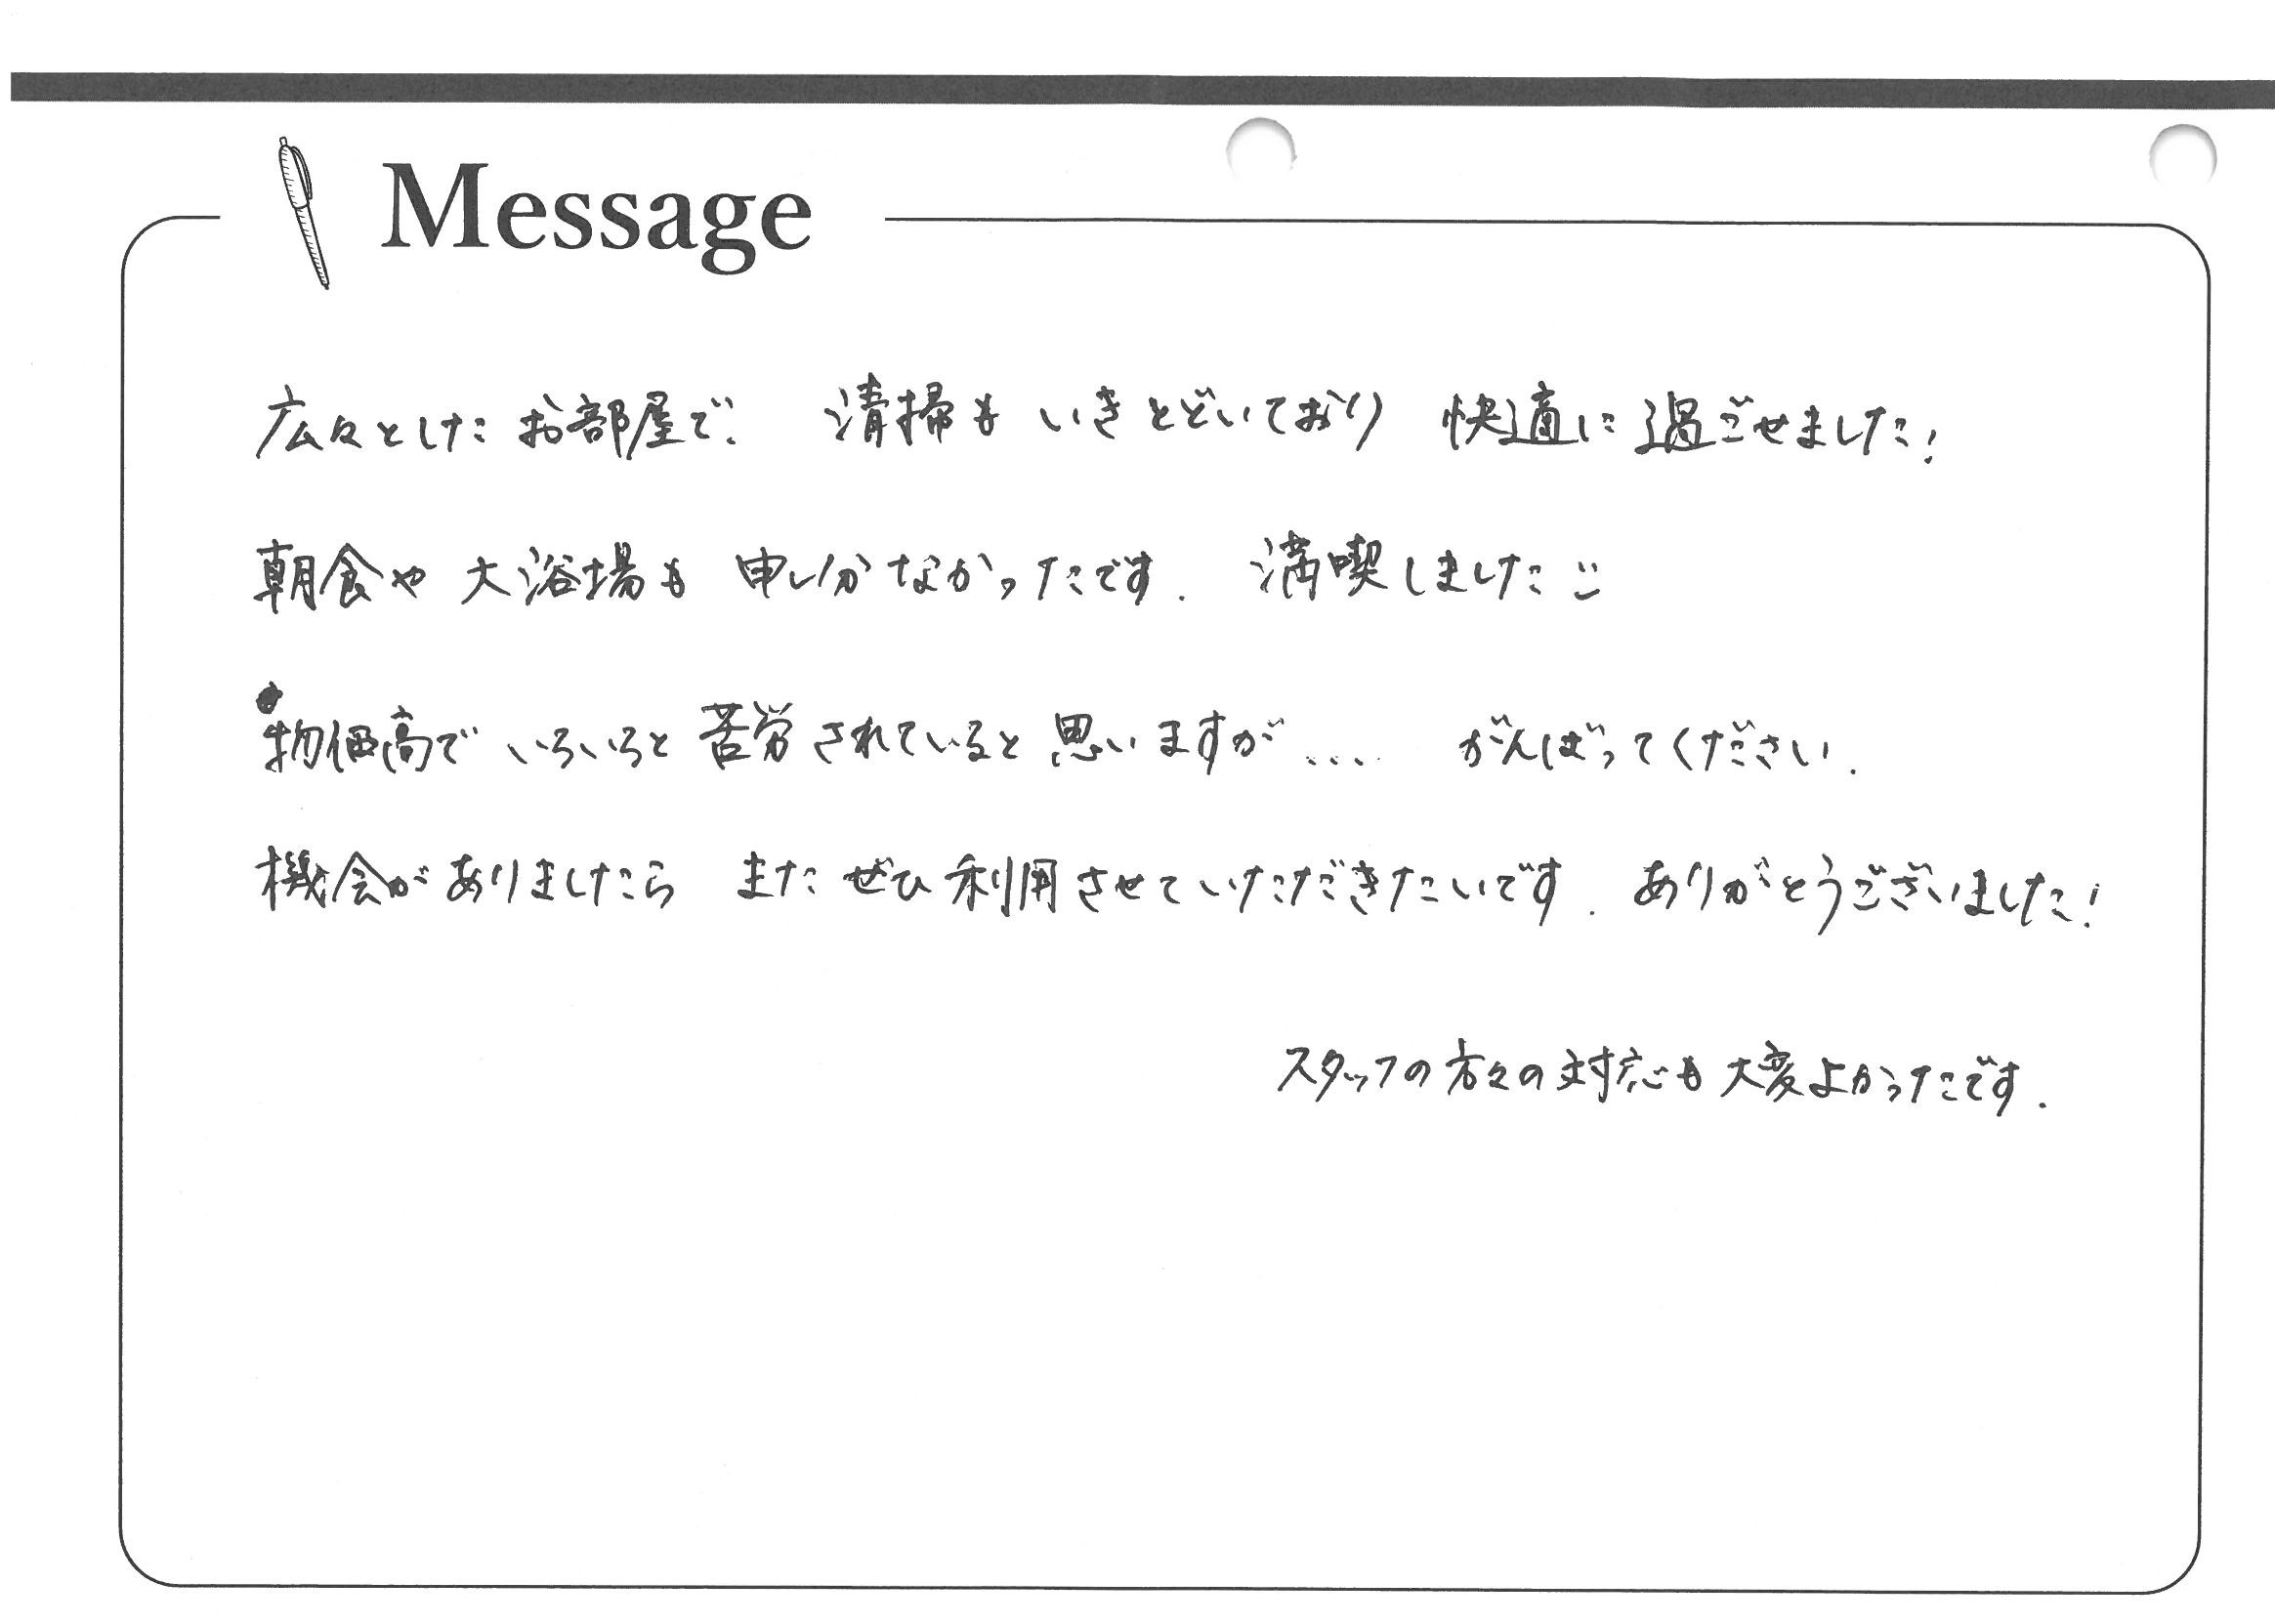 Message
広々としたお部屋で、 清掃もいきとどいており 快適に過ごせました!
朝食や大浴場も 申し分なかったです. 満喫しました
物価高で いろいろと苦労されていると思いますが.... がんばってください.
機会がありましたら またぜひ利用させていただきたいです. ありがとうございました!
スタッフの方々の対応も大変よかったです.